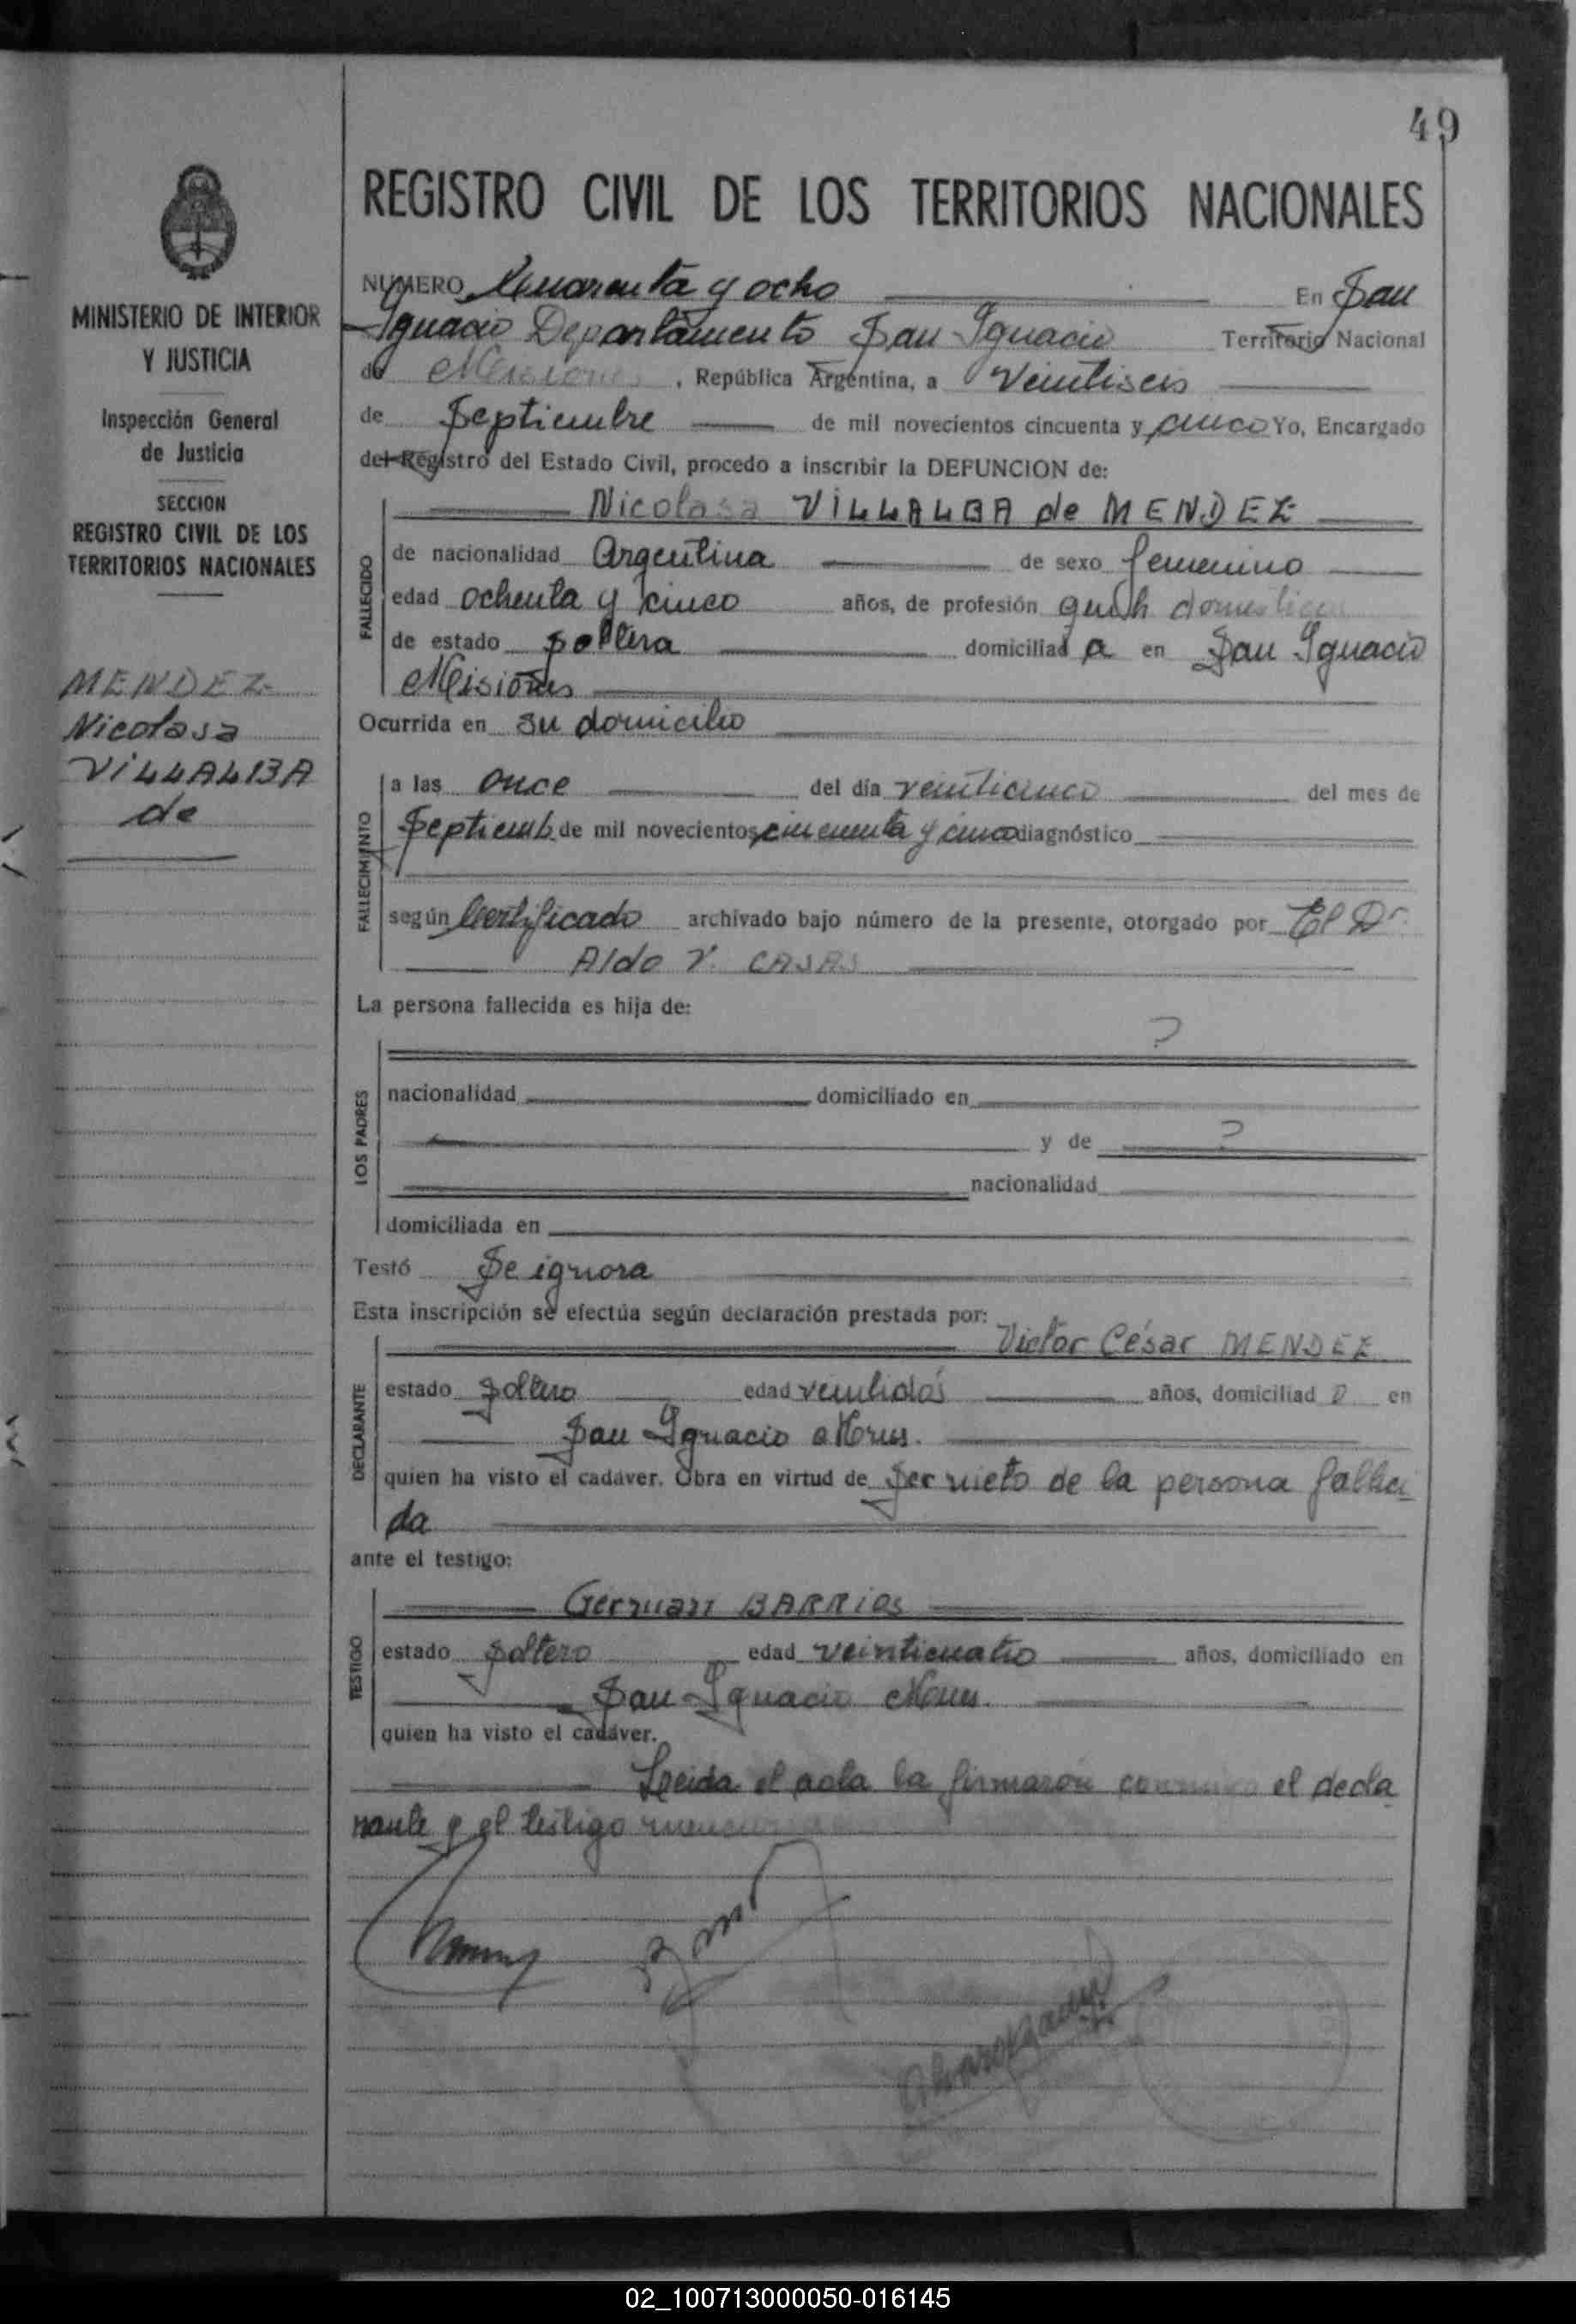 49
REGISTRO CIVIL DE LOS TERRITORIOS NACIONALES
MINISTERIO DE INTERIOR
Y JUSTICIA
Inspección General
de Justicia
SECCION
REGISTRO CIVIL DE LOS
TERRITORIOS NACIONALES
MENDEZ
Nicolasa
ViLLALBA
de
NUMERO Cuarenta y ocho En San
Ignacio Departamento San Ignacio Territorio Nacional
de Misiones, República Argentina, a Veintiseis
de Septiembre de mil novecientos cincuenta y cinco Yo, Encargado
del Registro del Estado Civil, procedo a inscribir la DEFUNCION de:
Nicolasa ViLLALBA de MENDEZ
FALLECIDO
de nacionalidad Argentina de sexo femenino
edad ochenta y cinco años, de profesión domestica
de estado soltera domiciliada en San Ignacio
Misiones
Ocurrida en su domicilio
FALLECIMIENTO
a las once del día veinticinco del mes de
Septiemb. de mil novecientos cincuenta y cinco diagnóstico
según Certificado archivado bajo número de la presente, otorgado por El Dr.
Aldo V. CASAS
La persona fallecida es hija de:
?
LOS PADRES
nacionalidad domiciliado en
y de ?
nacionalidad
domiciliada en
Testó Se ignora
Esta inscripción se efectúa según declaración prestada por:
Victor César MENDEZ
DECLARANTE
estado soltero edad veintidós años, domiciliado en
San Ignacio
quien ha visto el cadáver. Obra en virtud de ser nieto de la persona falleci
da
ante el testigo:
German BARRiOS
TESTIGO
estado soltero edad veinticuatro años, domiciliado en
San Ignacio
quien ha visto el cadáver.
Leida el acta la firmaron conmigo el decla
rante y el testigo
02_100713000050-016145